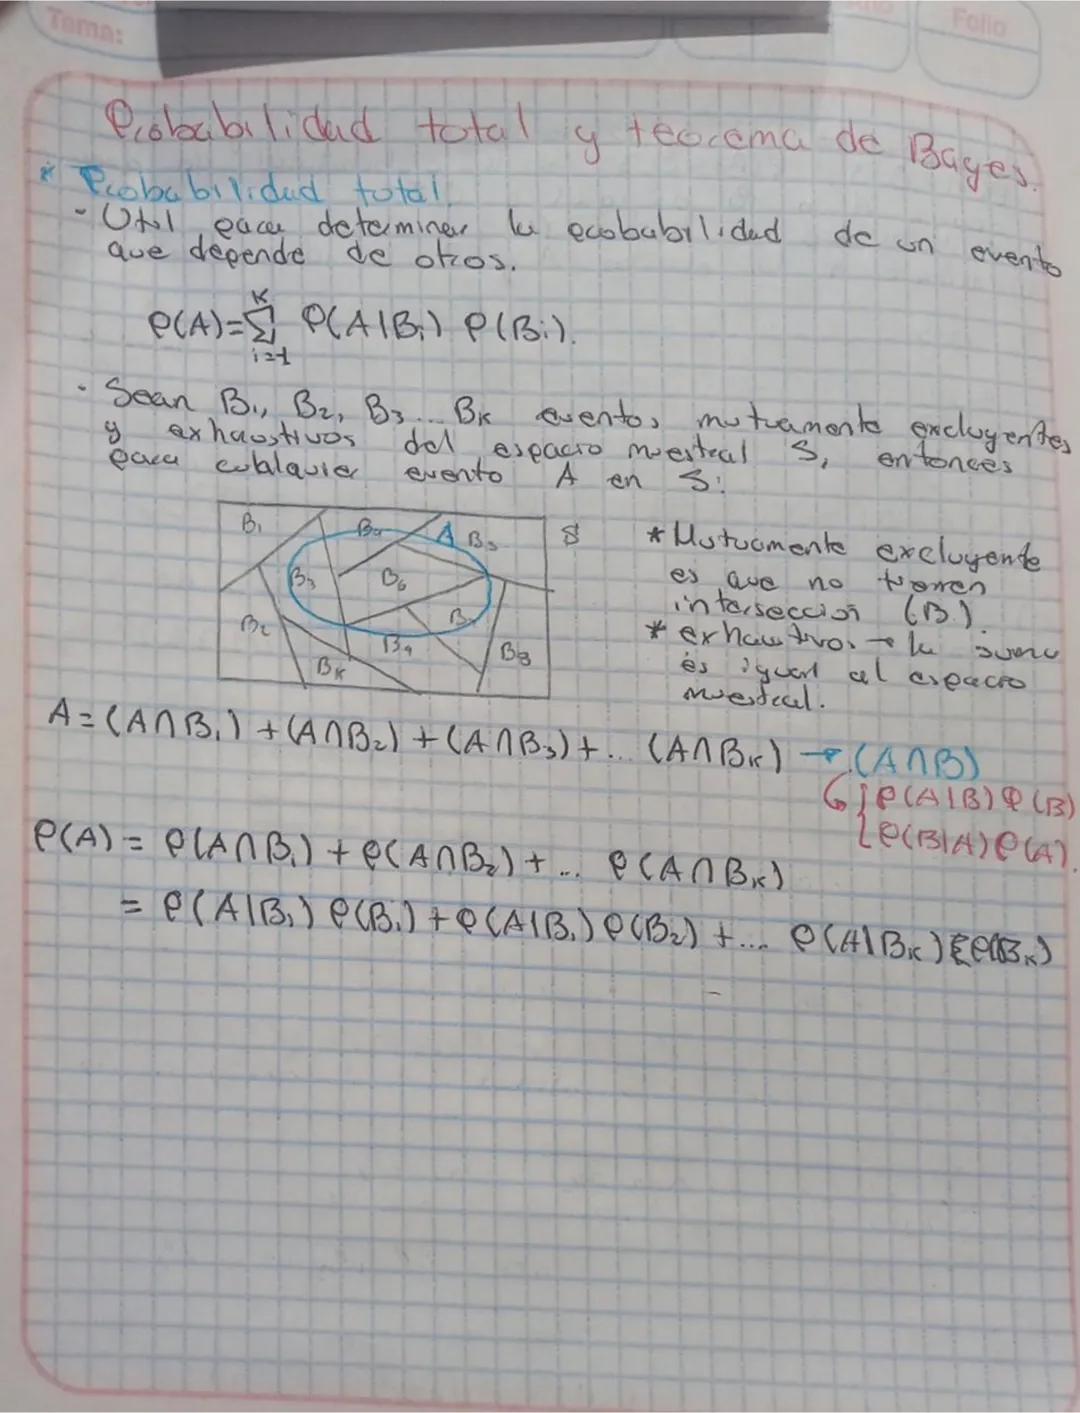 Tema:
Folio
Probabilidad total y teorema de Bayes.
* Probabilidad total
- Util para determinar la probabilidad de un evento
que depende de otros.
P(A)=∑ᵢ₌₁ᴷ P(A|Bi) P(Bi).
- Sean B₁, B₂, B₃... Bk eventos mutuamente excluyentes
y exhaustivos del espacio muestral S, entonces
para cualquier evento A en S:
B₁ B₄ A B₅ S
B₃ B₆
B₂ B₇
B₉ B₈
Bk
* Mutuamente excluyente
es que no tienen
intersección (B.)
* exhaustivos → la suma
es igual al espacio
muestral.
A=(A∩B₁)+(A∩B₂)+(A∩B₃)+... (A∩Bk) → (A∩B)
↳ { P(A|B) P(B)
{ P(B|A) P(A).
P(A) = P(A∩B₁) + P(A∩B₂) + ... P(A∩Bk)
= P(A|B₁) P(B₁) + P(A|B₁) P(B₂) + ... P(A|Bk) P(Bk)